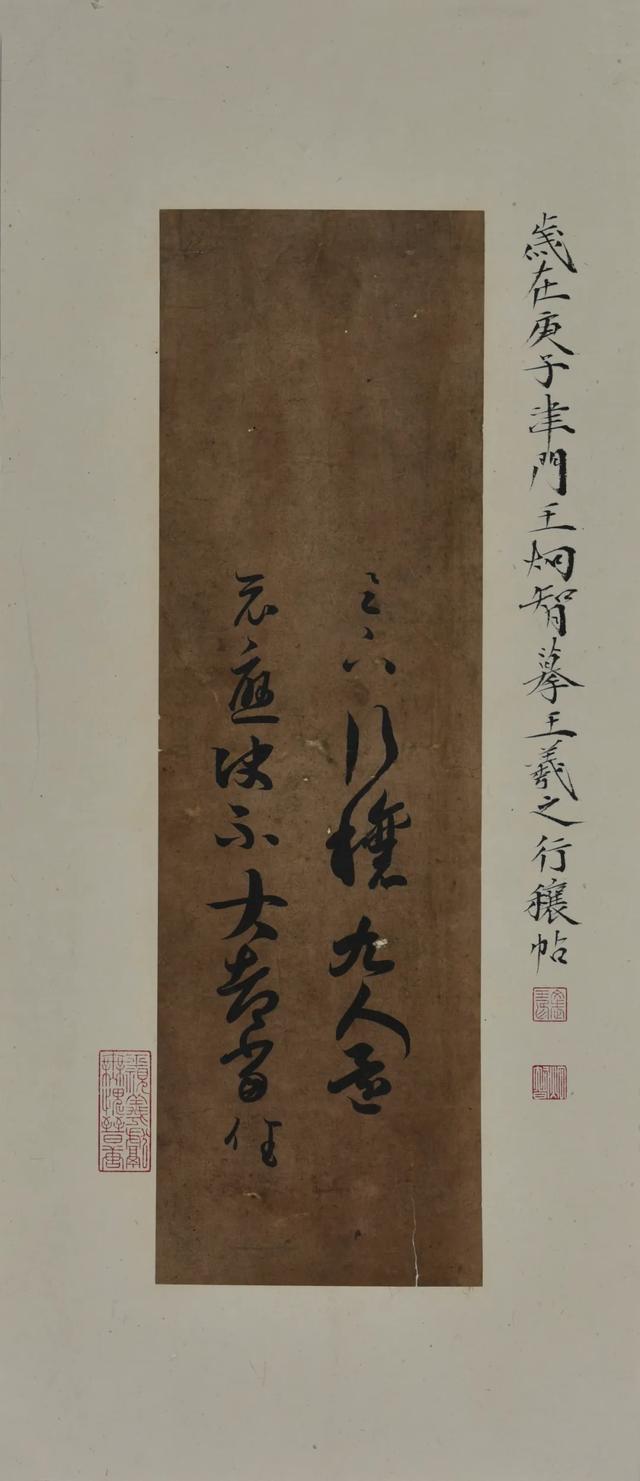 歲在庚子津門王炯智摹王羲之行穰帖
足下行穰九人還
示應決不大都當佳